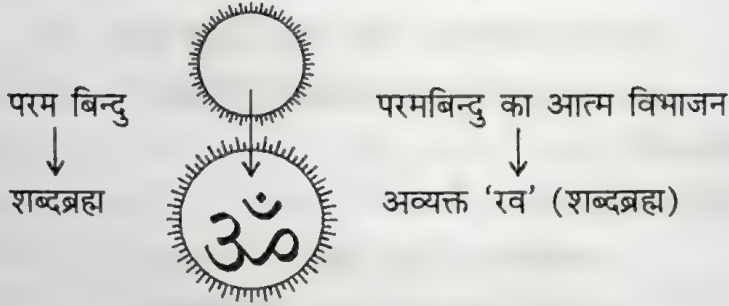 परम बिन्दु
शब्दब्रह्म
ॐ
परमबिन्दु का आत्म विभाजन
अव्यक्त ‘रव’ (शब्दब्रह्म)